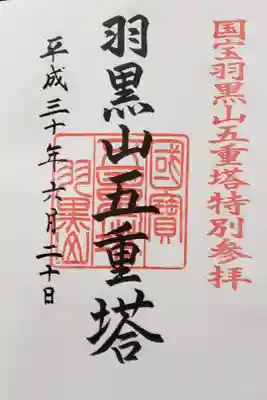 国宝羽黒山五重塔特別参拝
羽黒山五重塔
平成三十年六月二十日
國寶
五重塔
羽黒山